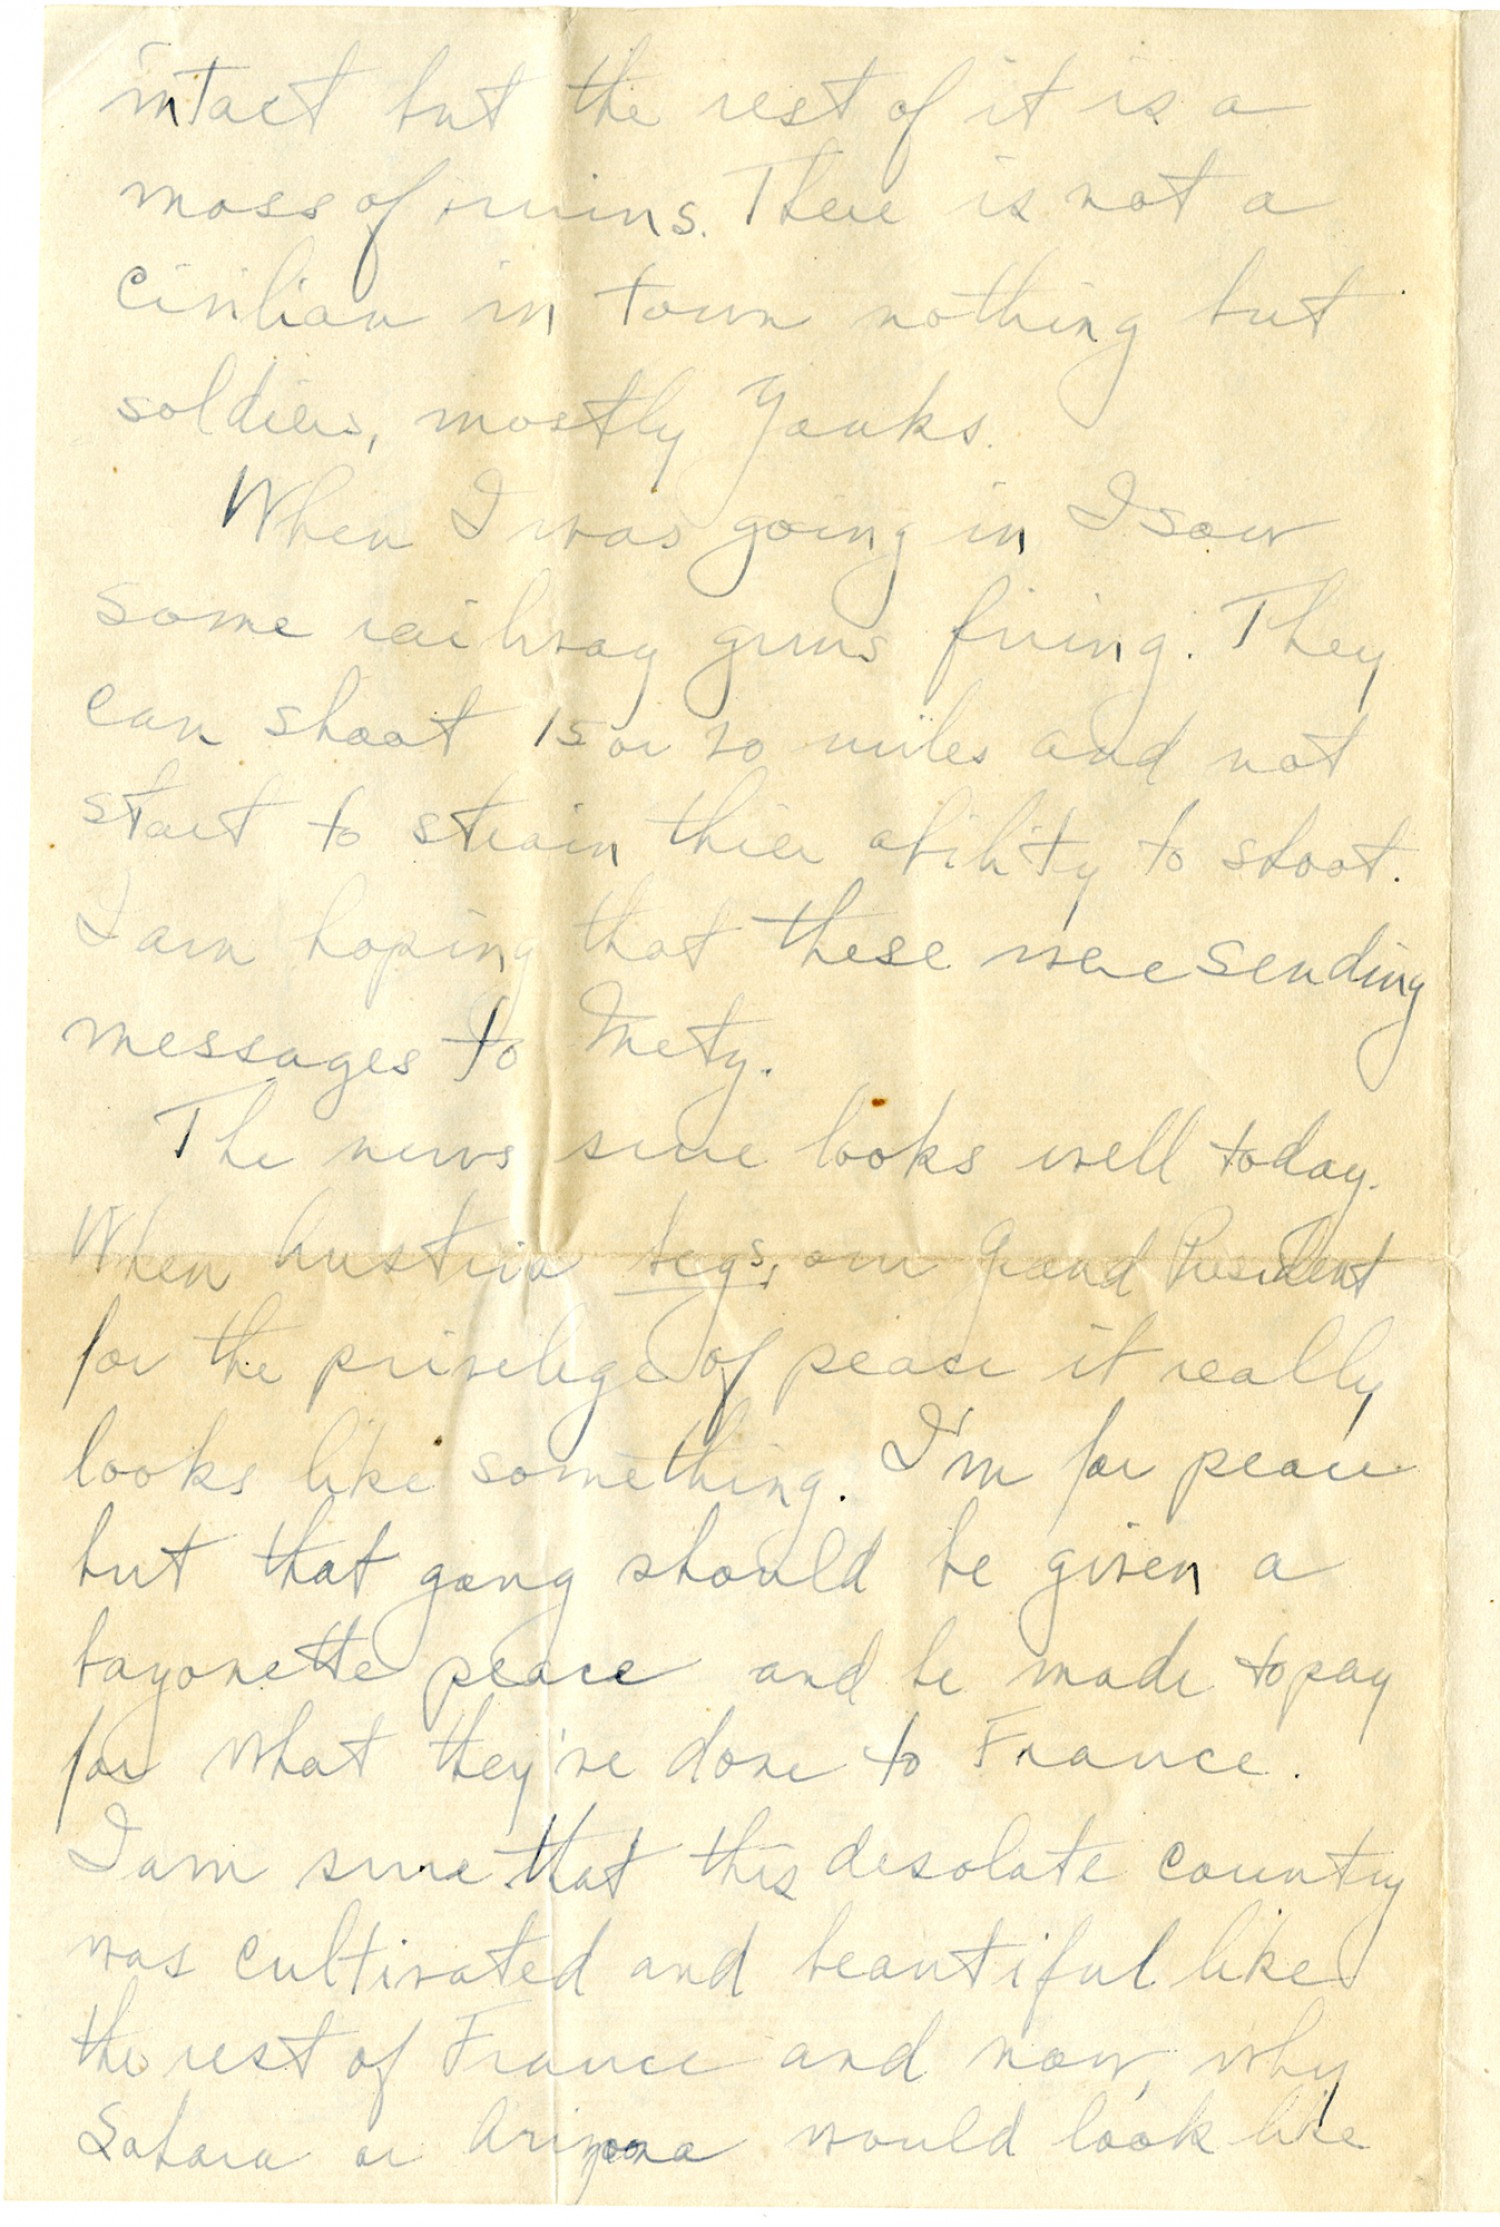 intact but the rest of it is a
mass of ruins. There is not a
civilian in town nothing but
soldiers, mostly Yanks.
When I was going in I saw
some railway guns firing. They
can shoot 15 or 20 miles and not
start to strain thier ability to shoot.
I am hoping that these were sending
messages to Metz.
The news sure looks well today.
When Austria begs, our Grand President
for the privelege of peace it really
looks like something. I'm for peace
but that gang should be given a
bayonette peace and be made to pay
for what they've done to France.
I am sure that this desolate country
was cultivated and beautiful like
the rest of France and now, why
Sahara or Arizona would look like